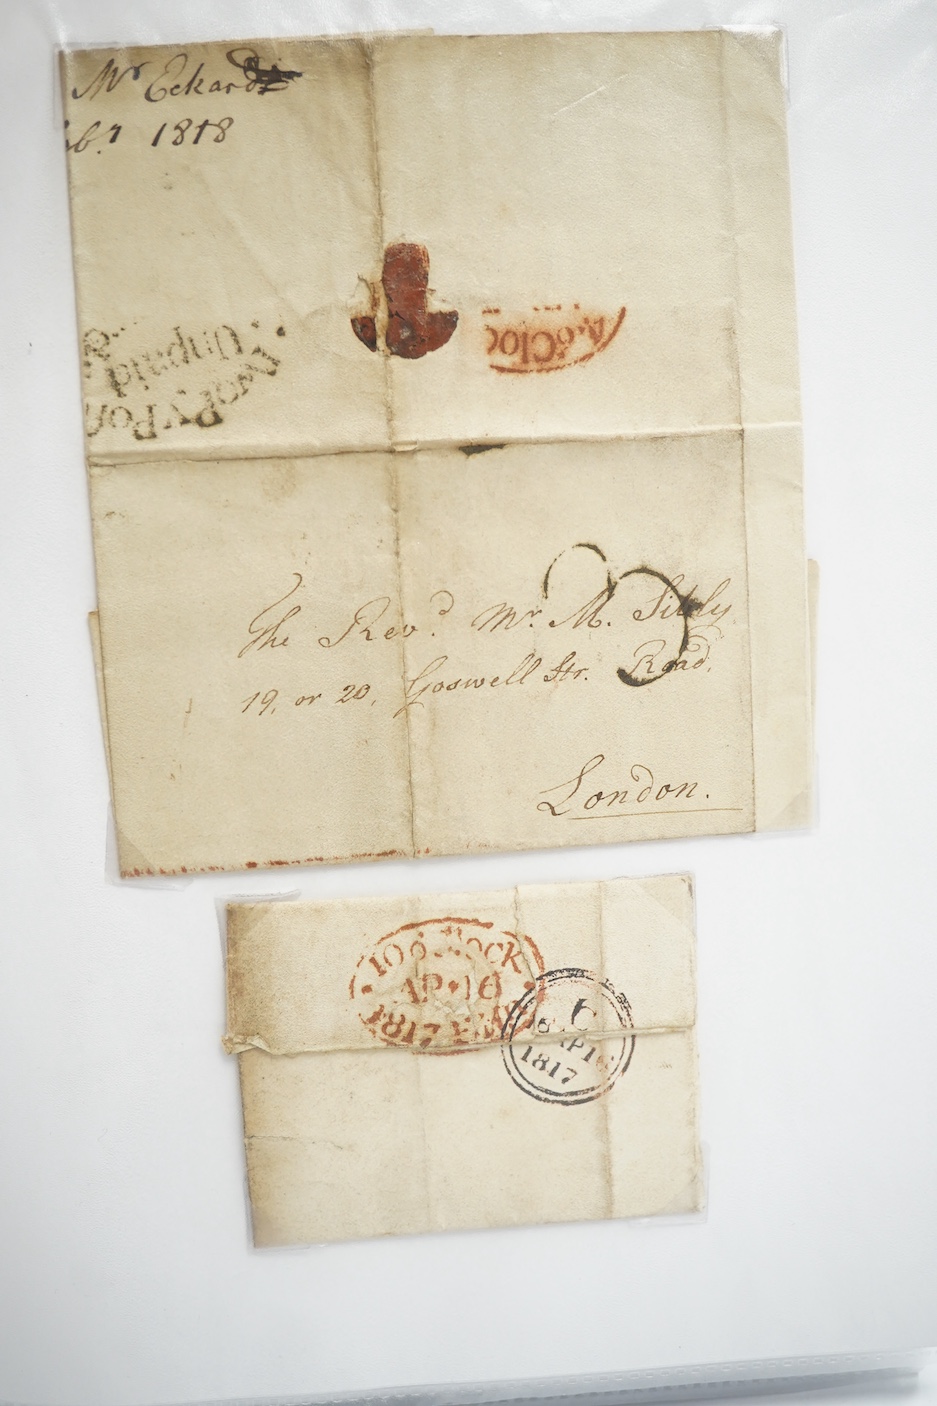 Mr Eckardt
1818
A.6Cloc
Unpaid
TwoPyPos
The Revd. Mr. M. Sibly
19, or 20, Goswell Str. Road.
London.
10 o'Clock
AP•16
1817
C
1817